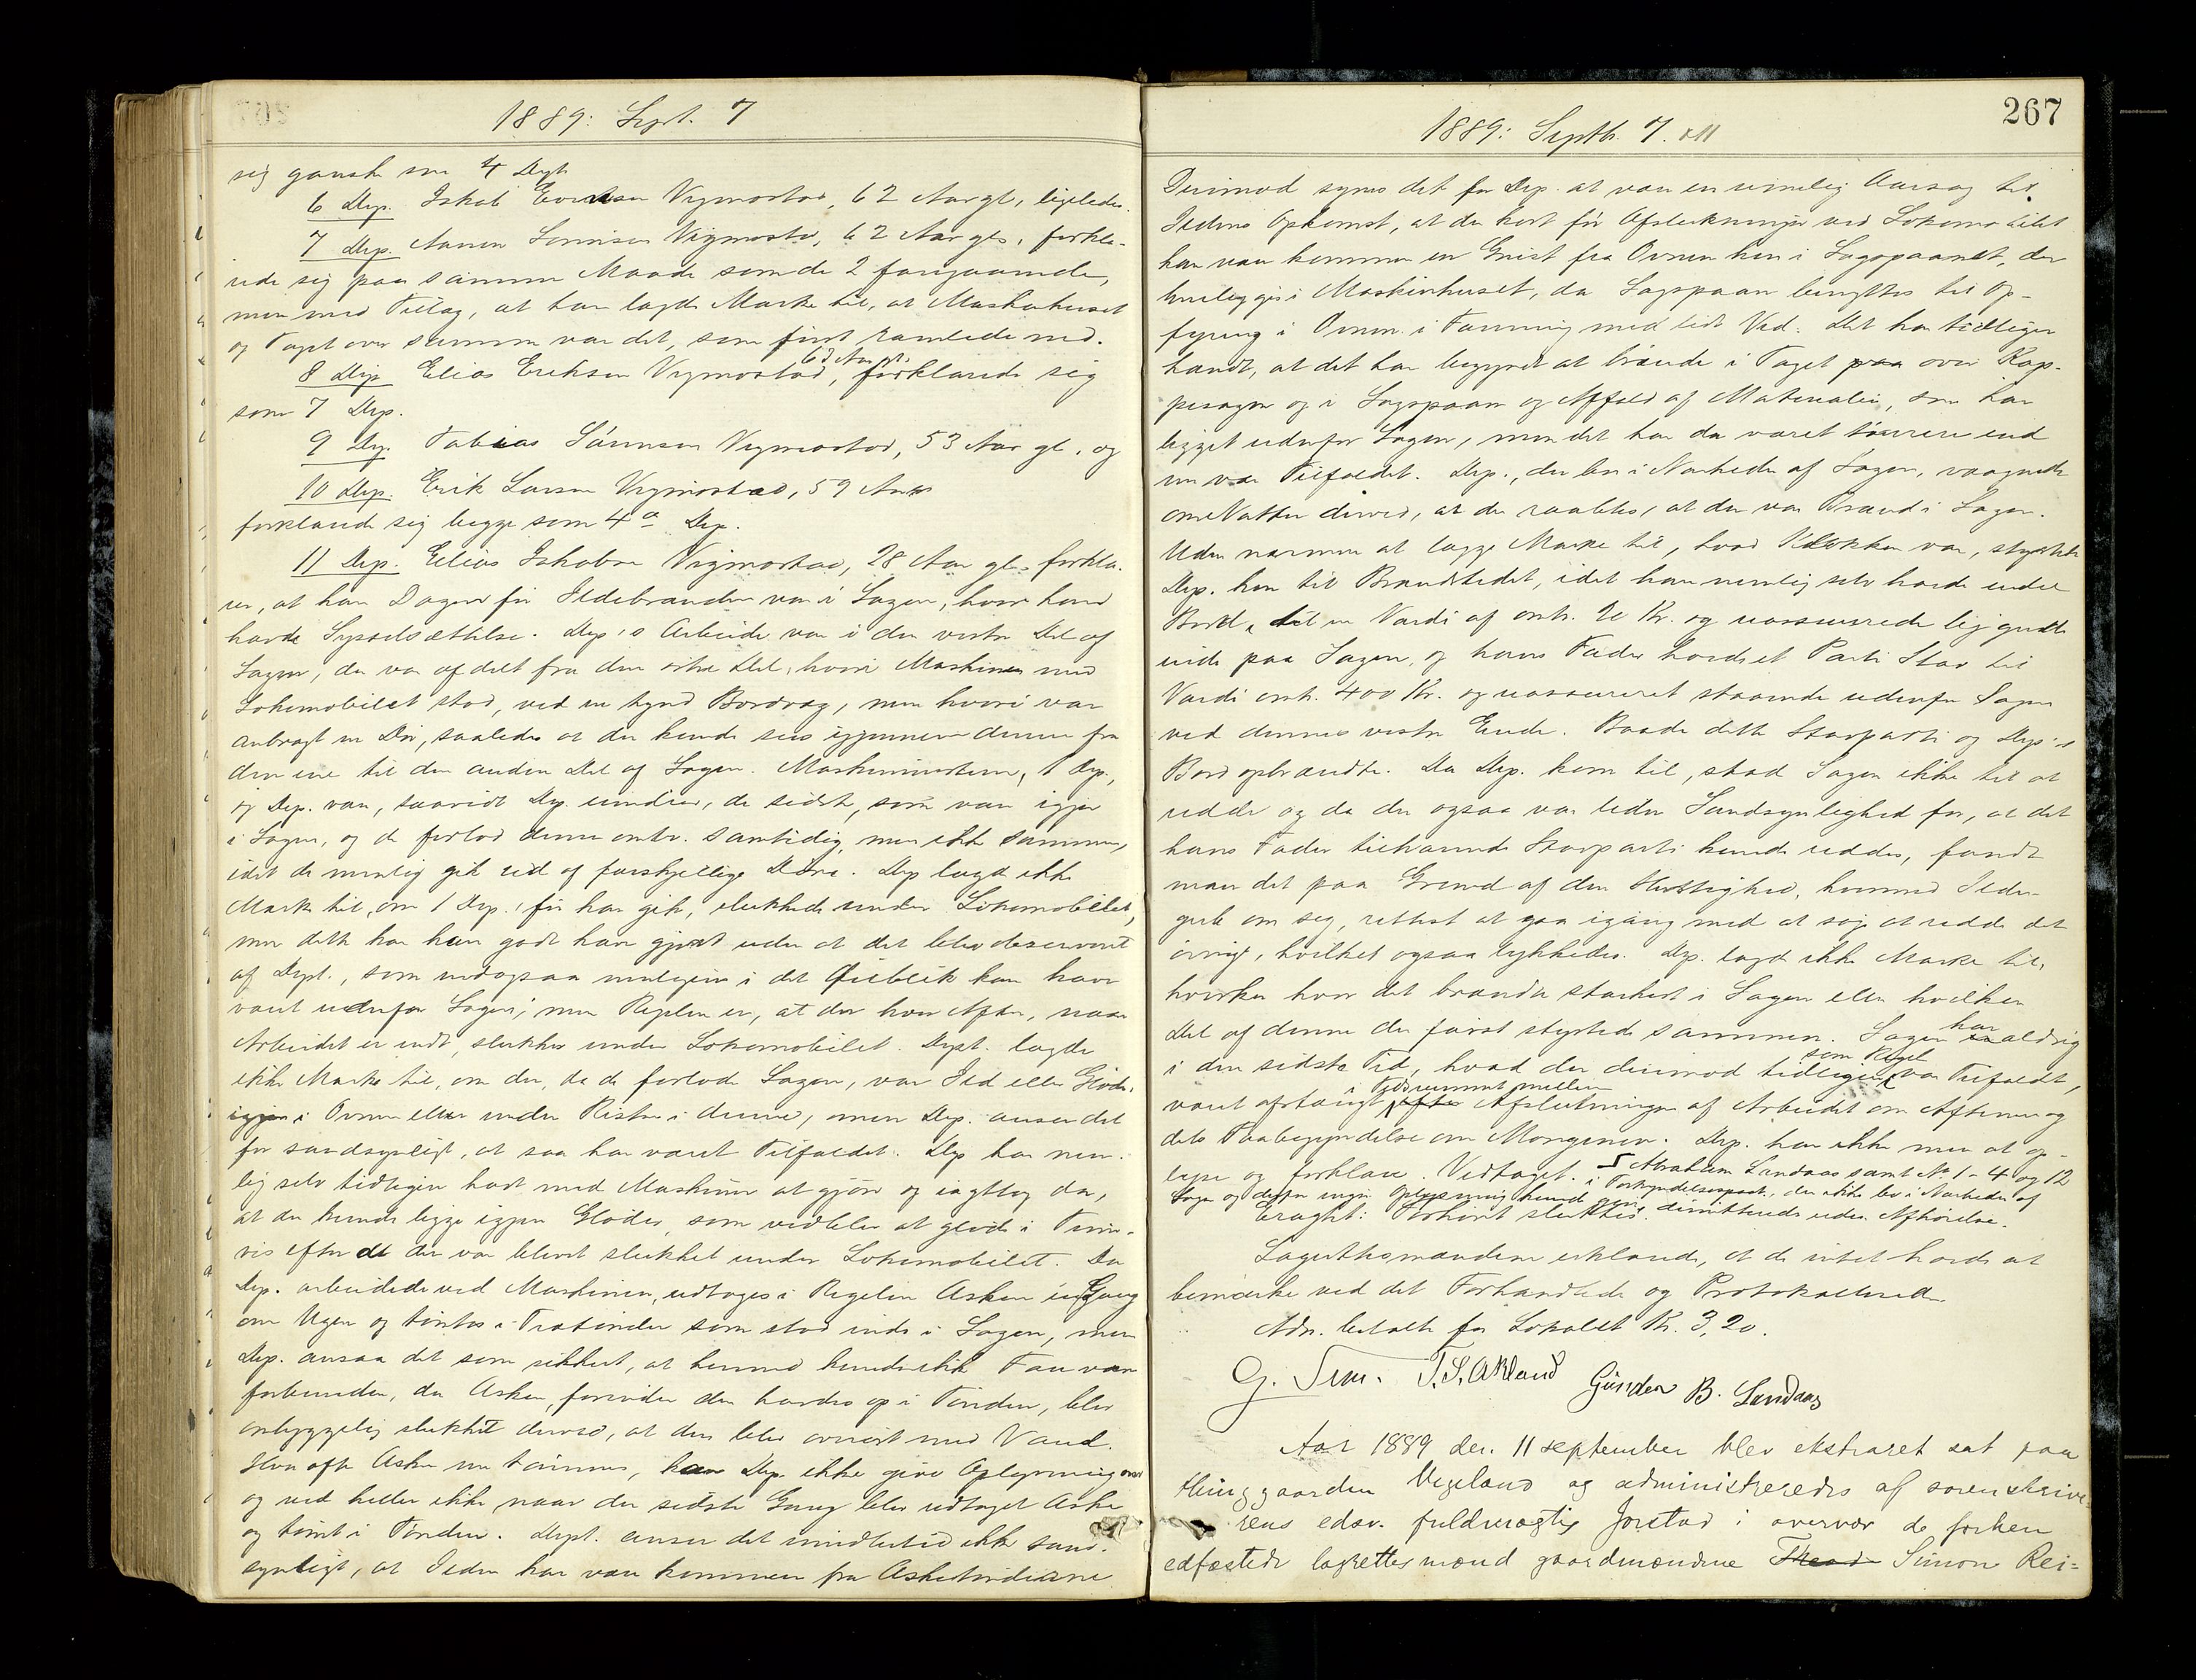 1889: Sept. 7
sig ganske som 4 Dept.
6 Dep. Jakob Evensen Vigmostad, 62 Aar gl., ligeledes.
7 Dep. Aanen Vigmostad, 62 Aar gl., forkla-
rede sig paa samme Maade som de 2 foregaaende,
men med Tillæg, at han lagde Mærke til, at Maskinhuset
og Taget over samme var det, som først ramlede ned.
8 Dep. Elias Eriksen Vigmostad, 63 Aar gl. forklarede sig
som 7 Dep.
9 Dep. Tobias Sørensen Vigmostad, 53 Aar gl. og
10 Dep. Erik Larsen Vigmostad, 59 Aar
forklarede sig begge som 4de Dep.
11 Dep. Elias Jakobsen Vigmostad, 28 Aar gl. forkla-
rer, at han Dagen før Ildebranden var i Sagen, hvor han
havde Sysselsættelse. Dep's Arbeide var i den vestre Del af
Sagen, der var afdelt fra den østre Del, hvori Maskinen med
Lokomobilet stod, ved en tynd Bordvæg, men hvori var
anbragt en Dør, saaledes at der kunde sees igjennem denne fra
den ene til den anden Del af Sagen. Maskinmesteren, 1 Dep.,
og Dep. var, saavidt Dep. erindrer, de sidste, som var igjen
i Sagen, og de forlod denne omtr. samtidig, men ikke sammen,
idet de nemlig gik ud af forskjellige Døre. Dep lagde ikke
Mærke til, om 1 Dep., før han gik, slukkede under Lokomobilet,
men dette kan han godt have gjort uden at det blev observeret
af Dept., som endogsaa muligens i det Øieblik kan have
været udenfor Sagen; men Reglen er, at der hver Aften, naar
Arbeidet er endt, slukkes under Lokomobilet. Dept. lagde
ikke Mærke til, om der, da de forlode Sagen, var Ild eller Gløder
igjen i Ovnen eller under Risten i denne, men Dep. anser det
for sandsynligt, at saa har været Tilfældet. Dep har nem-
lig selv tidligere havt med Maskinen at gjøre og iagttog da,
at der kunde ligge igjen Gløder, som vedblev at gløde i Timevis
efter at der var blevet slukket under Lokomobilet. Da
Dep. arbeidede ved Maskinen, udtoges i Regelen Asken en Gang
om Ugen og tømtes i Trætønder som stod inde i Sagen, men
Dep. ansaa det som sikkert, at hermed kunde ikke Fare være
forbunden, da Asken, forinden den havdes op i Tønden, blev
omhyggelig slukket derved, at den blev overøst med Vand.
Hvor ofte Asken nu tømmes, kan Dep. ikke give Oplysning om
og ved heller ikke naar der sidste Gang blev udtaget Aske
og tømt i Tønden. Dept. anser det imidlertid ikke sand-
synligt, at Ilden kan være kommen fra Asketønderne
267
1889: Septbr. 7. & 11
Derimod synes det for Dep. at være en rimelig Aarsag til
Ildens Opkomst, at der kort før Afslukningen ved Lokomobilet
kan være kommen en Gnist fra Ovnen hen i Sagspaanet, der
henligges i Maskinhuset, da Sagspaan benyttes til Op-
fyring i Ovnen i Forening med lidt Ved. Det har tidligere
hændt, at det har begyndt at brænde i Taget paa over Kap-
pesagen og i Sagspaan og Affald af Materialier, som har
ligget udenfor Sagen, men det har da været tørrere end
nu var Tilfældet. Dep., der bor i Nærheden af Sagen, vaagnede
om Natten derved, at der raabtes, at der var Brand i Sagen.
Uden nærmere at lægge Mærke til, hvad Klokken var, styrtede
Dep. hen til Brandstedet, idet han nemlig selv havde endel
Bord, til en Værdi af omtr. 20 Kr. og uassurerede liggende
inde paa Sagen, og hans Fader havde et Parti Stav til
Værdi omtr. 400 Kr. og uassureret staaende udenfor Sagen
ved dennes vestre Ende. Baade dette Stavparti og Dep's
Bord opbrændte. Da Dep. kom til, stod Sagen ikke til at
redde og da der ogsaa var liden Sandsynlighed for, at det
hans Fader tilhørende Stavparti kunde reddes, fandt
man det paa Grund af den Hurtighed, hvormed Ilden
greb om sig, rettest at gaa igang med at søge at redde det
øvrige, hvilket ogsaa lykkedes. Dep. lagde ikke Mærke til,
hverken hvor det brændte stærkest i Sagen eller hvilken
Del af denne der først styrtede sammen. Sagen har aldrig
i den sidste Tid, hvad der derimod tidligere som Regel var Tilfældet,
været afstængt i Tidsrummet mellem efter Afslutningen af Arbeidet om Aftenen og
dets Paabegyndelse om Morgenen. Dep. har ikke mere at op-
lyse og forklare. Vedtaget. Abraham Landaas samt No 1-4 og 12
i Forkyndelsespaat., der ikke bor i Nærheden af
Sagen og derfor ingen Oplysning kunde give, dimitteredes uden Afhørelse.
Eragtet: Forhøret sluttes.
Lagrettesmændene erklærede, at de intet havde at
bemærke ved det Forhandlede og Protokollerede.
Adm. betalte for Lokalet Kr. 3,20.
G. T. S. Akland Gunder B. Landaas
Aar 1889 den 11 september blev ekstraret sat paa
thinggaarden Vegeland og administreredes af sorenskrive-
rens edsv. fuldmægtig Jorstad i overvær de forhen
edfæstede lagrettesmænd gaardmændene Simon Rei-